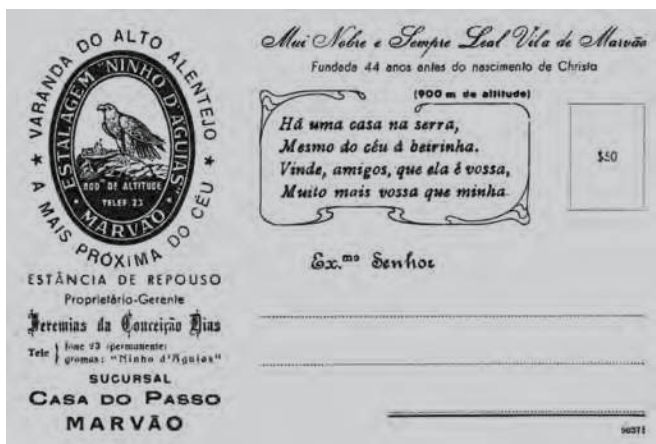 VARANDA DO ALTO ALENTEJO
★ A MAIS PRÓXIMA DO CÉU ★
ESTALAGEM "NINHO D'AGUIAS"
900 m DE ALTITUDE
TELEF. 23
• MARVÃO •
ESTÂNCIA DE REPOUSO
Proprietário-Gerente
Jeremias da Conceição Dias
Tele { fone 23 (permanente)
gramas: "Ninho d'Aguias"
SUCURSAL
CASA DO PASSO
MARVÃO
Mui Nobre e Sempre Leal Vila de Marvão
Fundada 44 anos antes do nascimento de Christo
(900 m de altitude)
Há uma casa na serra,
Mesmo do céu á beirinha.
Vinde, amigos, que ela é vossa,
Muito mais vossa que minha
$50
Ex.mo Senhor